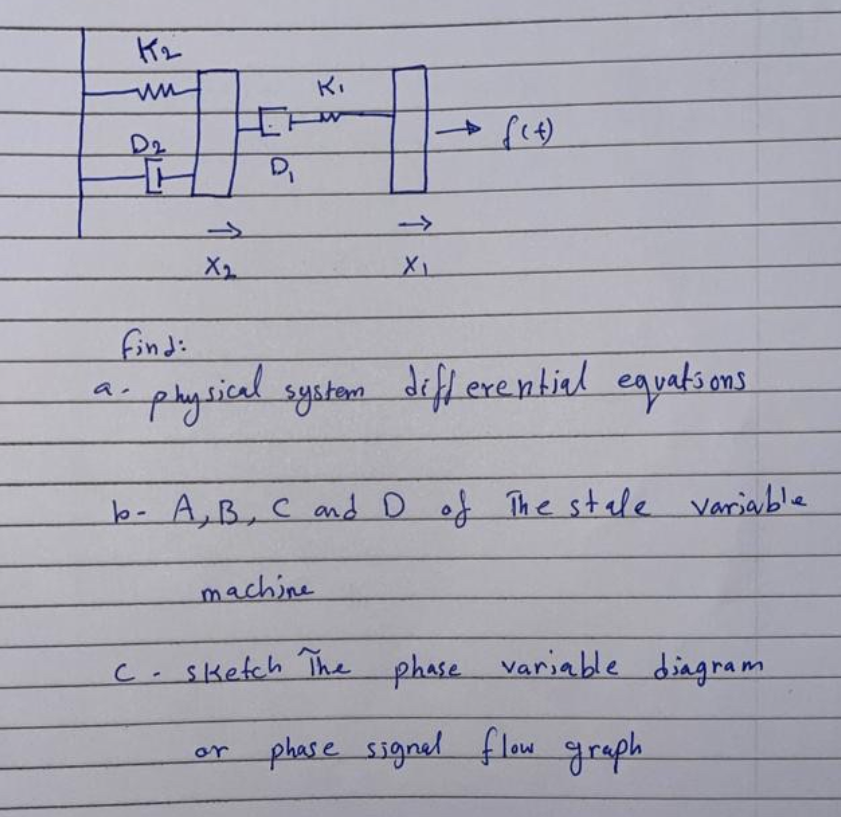 K2
K1
f(t)
D2
D1
X2
X1
find:
a- physical system differential equations
b- A, B, C and D of The stale variable
machine
C - sketch The phase variable diagram
or phase signal flow graph